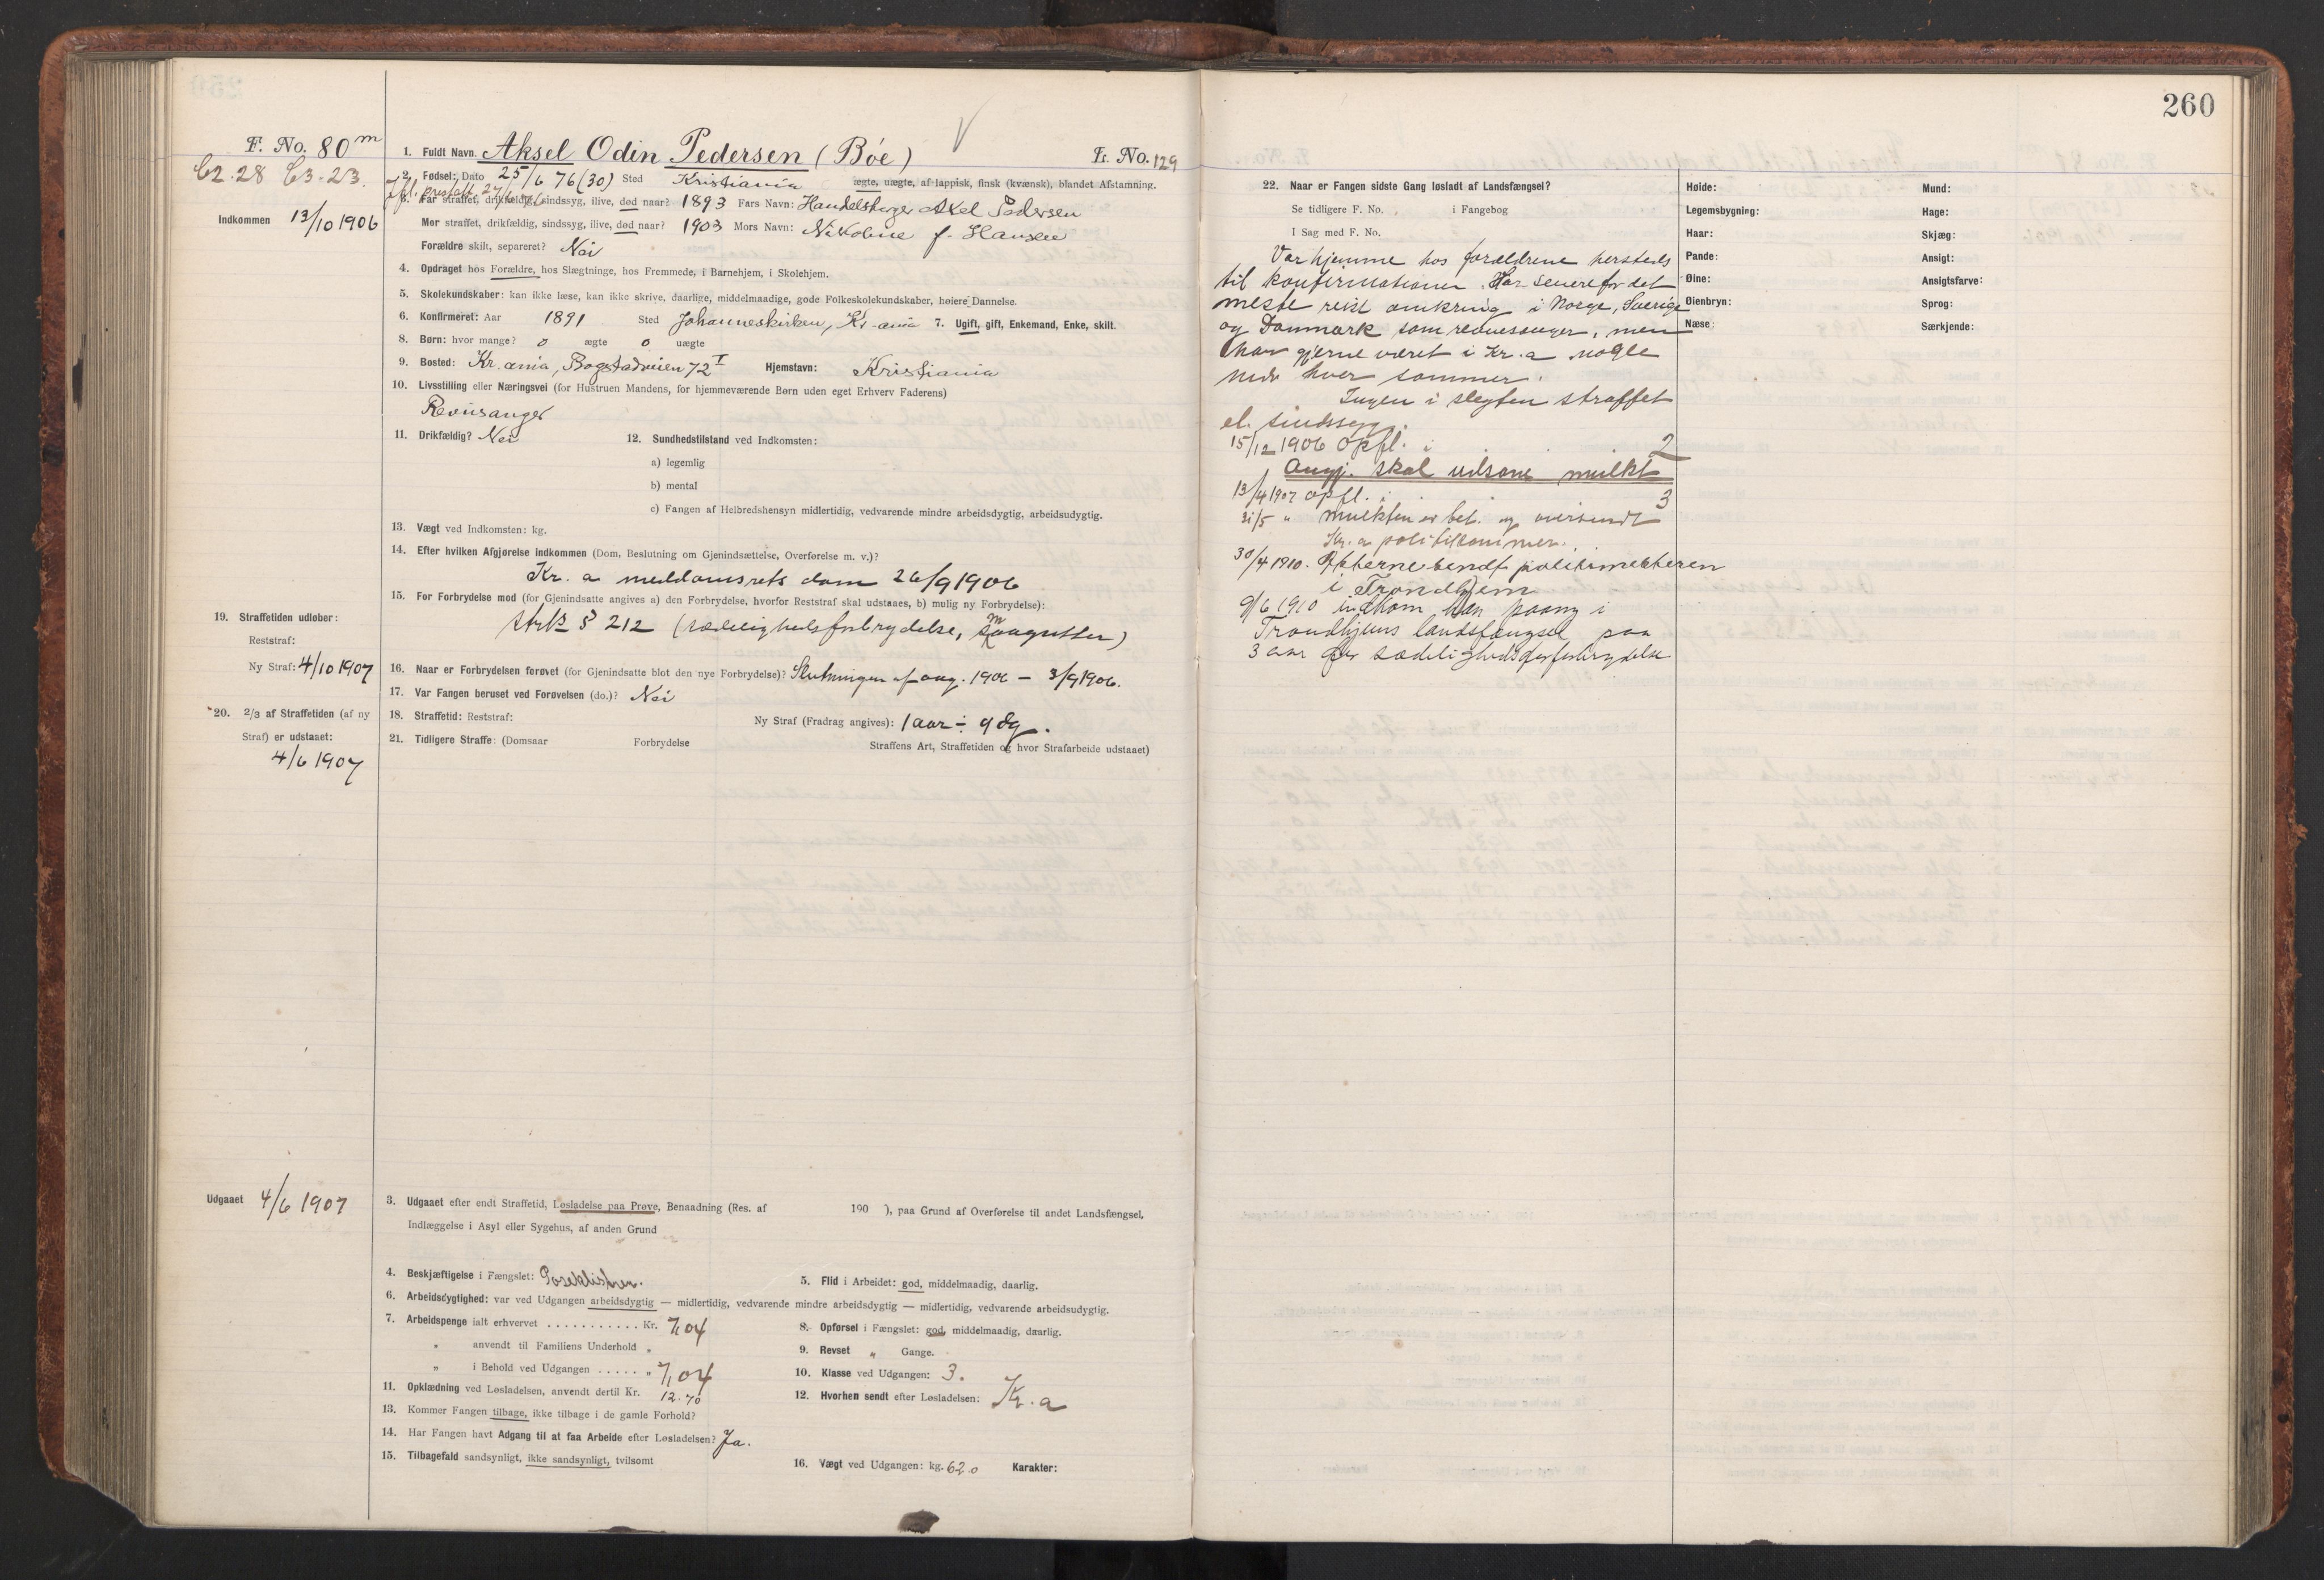 260
F. No. 80 m
C2.28 C3.23.
Indkommen 13/10 1906
1. Fuldt Navn. Aksel Odin Pedersen (Bøe) L. No. 129
2. Fødsel: Dato 25/6 76 (30) Sted Kristiania ægte, uægte, af lappisk, finsk (kvænsk), blandet Afstamning.
Ifl. prestatt. 27/6 76
3. Far straffet, drikfældig, sindssyg, ilive, død naar? 1893 Fars Navn: Handelsborger Axel Pedersen
Mor straffet, drikfældig, sindssyg, ilive, død naar? 1903 Mors Navn: Nikoline f. Hansen
Forældre skilt, separeret? Nei
4. Opdraget hos Forældre, hos Slægtninge, hos Fremmede, i Barnehjem, i Skolehjem.
5. Skolekundskaber: kan ikke læse, kan ikke skrive, daarlige, middelmaadige, gode Folkeskolekundskaber, høiere Dannelse.
6. Konfirmeret: Aar 1891 Sted Johanneskirken, Kr.ania 7. Ugift, gift, Enkemand, Enke, skilt.
8. Børn: hvor mange? 0 ægte 0 uægte
9. Bosted: Kr.ania, Bogstadveien 72 I Hjemstavn: Kristiania
10. Livsstilling eller Næringsvei (for Hustruen Mandens, for hjemmeværende Børn uden eget Erhverv Faderens)
Revüsanger
11. Drikfældig? Nei 12. Sundhedstilstand ved Indkomsten:
a) legemlig
b) mental
c) Fangen af Helbredshensyn midlertidig, vedvarende mindre arbeidsdygtig, arbeidsudygtig.
13. Vægt ved Indkomsten: kg.
14. Efter hvilken Afgjørelse indkommen (Dom, Beslutning om Gjenindsættelse, Overførelse m. v.)?
Kr.a meddomsrets dom 26/9 1906
15. For Forbrydelse mod (for Gjenindsatte angives a) den Forbrydelse, hvorfor Reststraf skal udstaaes, b) mulig ny Forbrydelse):
Strfl § 212 (sædelighedsforbrydelse, smaagutter)
19. Straffetiden udløber:
Reststraf:
Ny Straf: 4/10 1907
16. Naar er Forbrydelsen forøvet (for Gjenindsatte blot den nye Forbrydelse)? Slutningen af aug. 1906 — 3/9 1906.
17. Var Fangen beruset ved Forøvelsen (do.)? Nei
20. 2/3 af Straffetiden (af ny
Straf) er udstaaet:
4/6 1907
18. Straffetid: Reststraf: Ny Straf (Fradrag angives): 1 aar ÷ 9 dg.
21. Tidligere Straffe: (Domsaar Forbrydelse Straffens Art, Straffetiden og hvor Strafarbeide udstaaet)
Udgaaet 4/6 1907
3. Udgaaet efter endt Straffetid, Løsladelse paa Prøve, Benaadning (Res. af 190 ), paa Grund af Overførelse til andet Landsfængsel,
Indlæggelse i Asyl eller Sygehus, af anden Grund
4. Beskjæftigelse i Fængslet: Poseklistrer. 5. Flid i Arbeidet: god, middelmaadig, daarlig.
6. Arbeidsdygtighed: var ved Udgangen arbeidsdygtig — midlertidig, vedvarende mindre arbeidsdygtig — midlertidig, vedvarende arbeidsudygtig.
7. Arbeidspenge ialt erhvervet ........... Kr. 7,04 8. Opførsel i Fængslet: god, middelmaadig, daarlig.
„ anvendt til Familiens Underhold „ 9. Revset „ Gange.
„ i Behold ved Udgangen ..... „ 7,04 10. Klasse ved Udgangen: 3.
11. Opklædning ved Løsladelsen, anvendt dertil Kr. 12.70 12. Hvorhen sendt efter Løsladelsen: Kr.a
13. Kommer Fangen tilbage, ikke tilbage i de gamle Forhold?
14. Har Fangen havt Adgang til at faa Arbeide efter Løsladelsen? Ja.
15. Tilbagefald sandsynligt, ikke sandsynligt, tvilsomt 16. Vægt ved Udgangen: kg. 62.0 Karakter:
22. Naar er Fangen sidste Gang løsladt af Landsfængsel?
Se tidligere F. No. i Fangebog
I Sag med F. No.
Var hjemme hos forældrene hersteds
til konfirmationen. Har senere for det
meste reist omkring i Norge, Sverige
og Danmark som revuesanger, men
har gjerne været i Kr.a nogle
mdr hver sommer.
Ingen i slegten straffet
el. sindssyg.
15/12 1906 opfl. i 2
Angj. skal udsone mulkt
13/4 1907 opfl. i 3
31/5 „ mulkten er bet. og oversendt
Kr.a politikammer.
30/4 1910. Akterne sendt politimesteren
i Trondhjem
9/6 1910 indkom han paany i
Trondhjems landsfængsel paa
3 aar for sædelighedsforbrydelse
Høide: Mund:
Legemsbygning: Hage:
Haar: Skjæg:
Pande: Ansigt:
Øine: Ansigtsfarve:
Øienbryn: Sprog:
Næse: Særkjende: